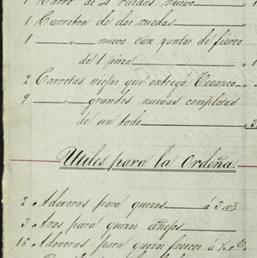 1 Carro de 4 ruedas nuevo
1 Carreton de dos ruedas
1 " nuevo con yantas de fierro
de 1 pieza
2 Carretas viejas que entregó
9 " grandes nuevas completas
de un todo
Utiles para la Ordeña.
2 Adoveras para quezos á 3
3 Aros para quezos añejos
16 Adoveras para quezos frescos á